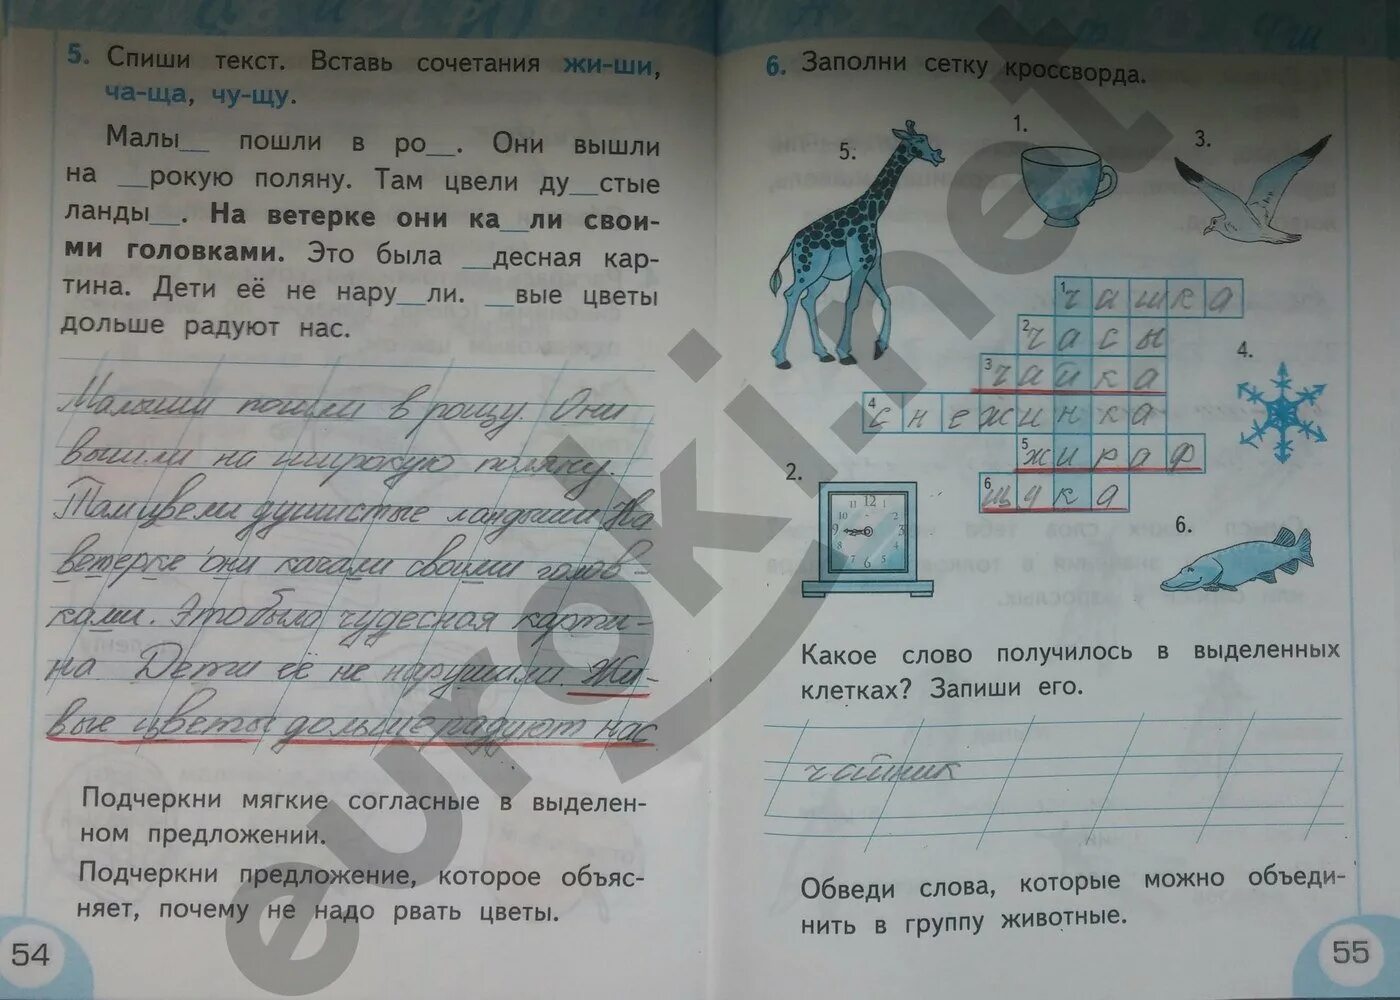 5. Спиши текст. Вставь сочетания жи-ши,
ча-ща, чу-щу.
Малы__ пошли в ро__. Они вышли
на __рокую поляну. Там цвели ду__стые
ланды__. На ветерке они ка__ли свои-
ми головками. Это была __десная кар-
тина. Дети её не нару__ли. __вые цветы
дольше радуют нас.
Малыши пошли в рощу. Они
вышли на широкую поляну.
Там цвели душистые ландыши На
ветерке они качали своими голов-
ками. Это была чудесная карти-
на Дети её не нарушали. Жи-
вые цветы дольше радуют нас
Подчеркни мягкие согласные в выделен-
ном предложении.
Подчеркни предложение, которое объяс-
няет, почему не надо рвать цветы.
54
6. Заполни сетку кроссворда.
1.
3.
5.
1 чашка
2 часы
3 чайка
4.
4 снежинка
5 жираф
2.
6 щука
11 12 1
10 2
9 3
8 4
7 6 5
6.
Какое слово получилось в выделенных
клетках? Запиши его.
чайник
Обведи слова, которые можно объеди-
нить в группу животные.
55
euroki.net